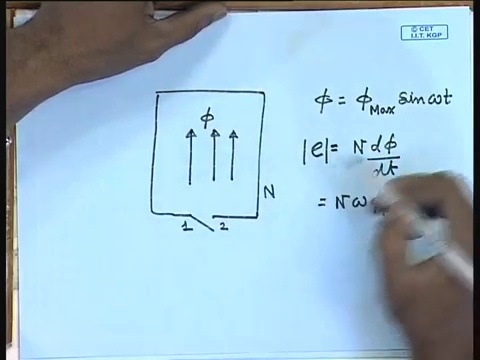 © CET
I.I.T. KGP
φ
N
1 2
φ = φMax sin ωt
|e| = N dφ/dt
= N ω